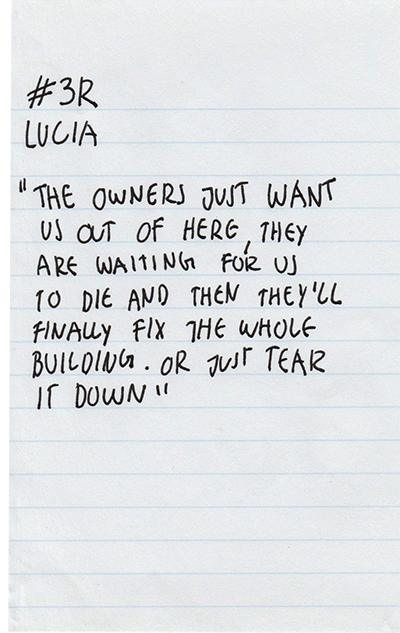 #3R
LUCIA
"THE OWNERS JUST WANT
US OUT OF HERE, THEY
ARE WAITING FOR US
TO DIE AND THEN THEY'LL
FINALLY FIX THE WHOLE
BUILDING. OR JUST TEAR
IT DOWN"